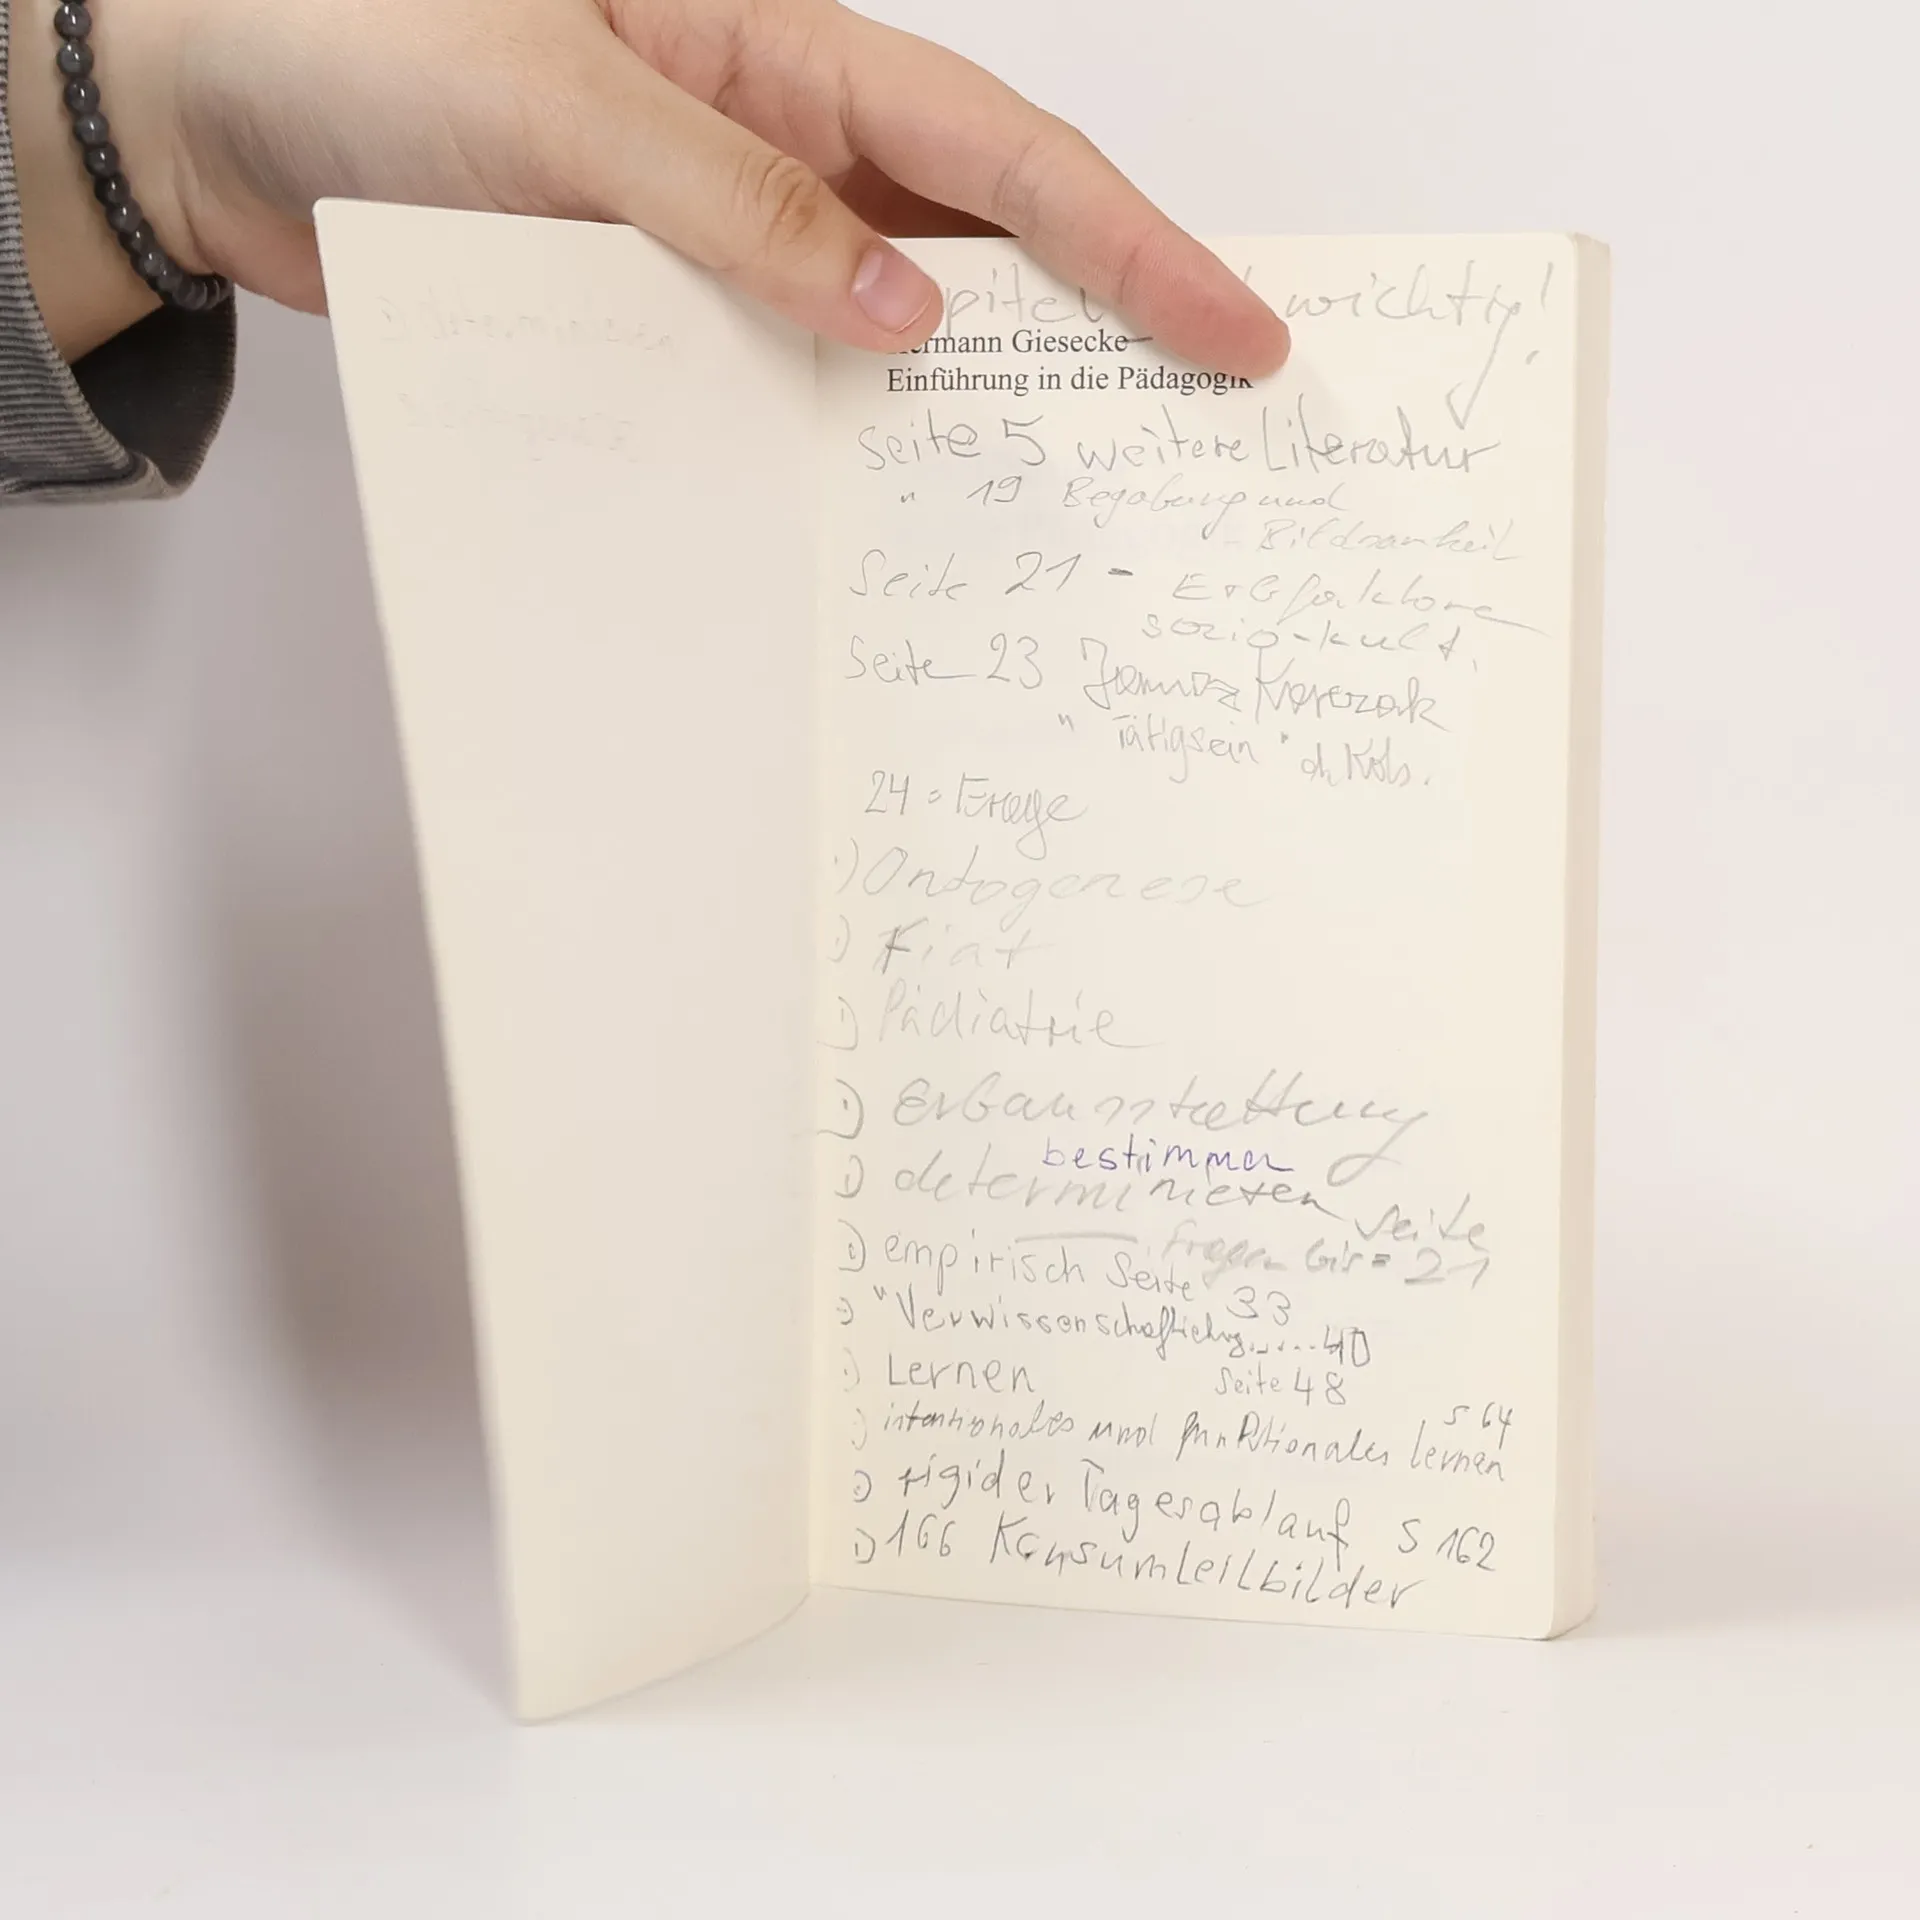 wichtig!
Hermann Giesecke
Einführung in die Pädagogik
Seite 5 weitere Literatur
" 19 Begabung und
Bildsamkeit
Seite 21 - Erbfaktoren
sozio-kult.
Seite 23 Janusz Korczak
"Tätigsein"
24 = Frage
Ontogenese
Fiat
Pädiatrie
bestimmen
determinieren Seite
Fragen bis = 21
empirisch Seite 33
"Verwissenschaftlichung.....40
Lernen Seite 48
S 64
intentionales und funktionales lernen
rigider Tagesablauf S 162
166 Konsumleitbilder